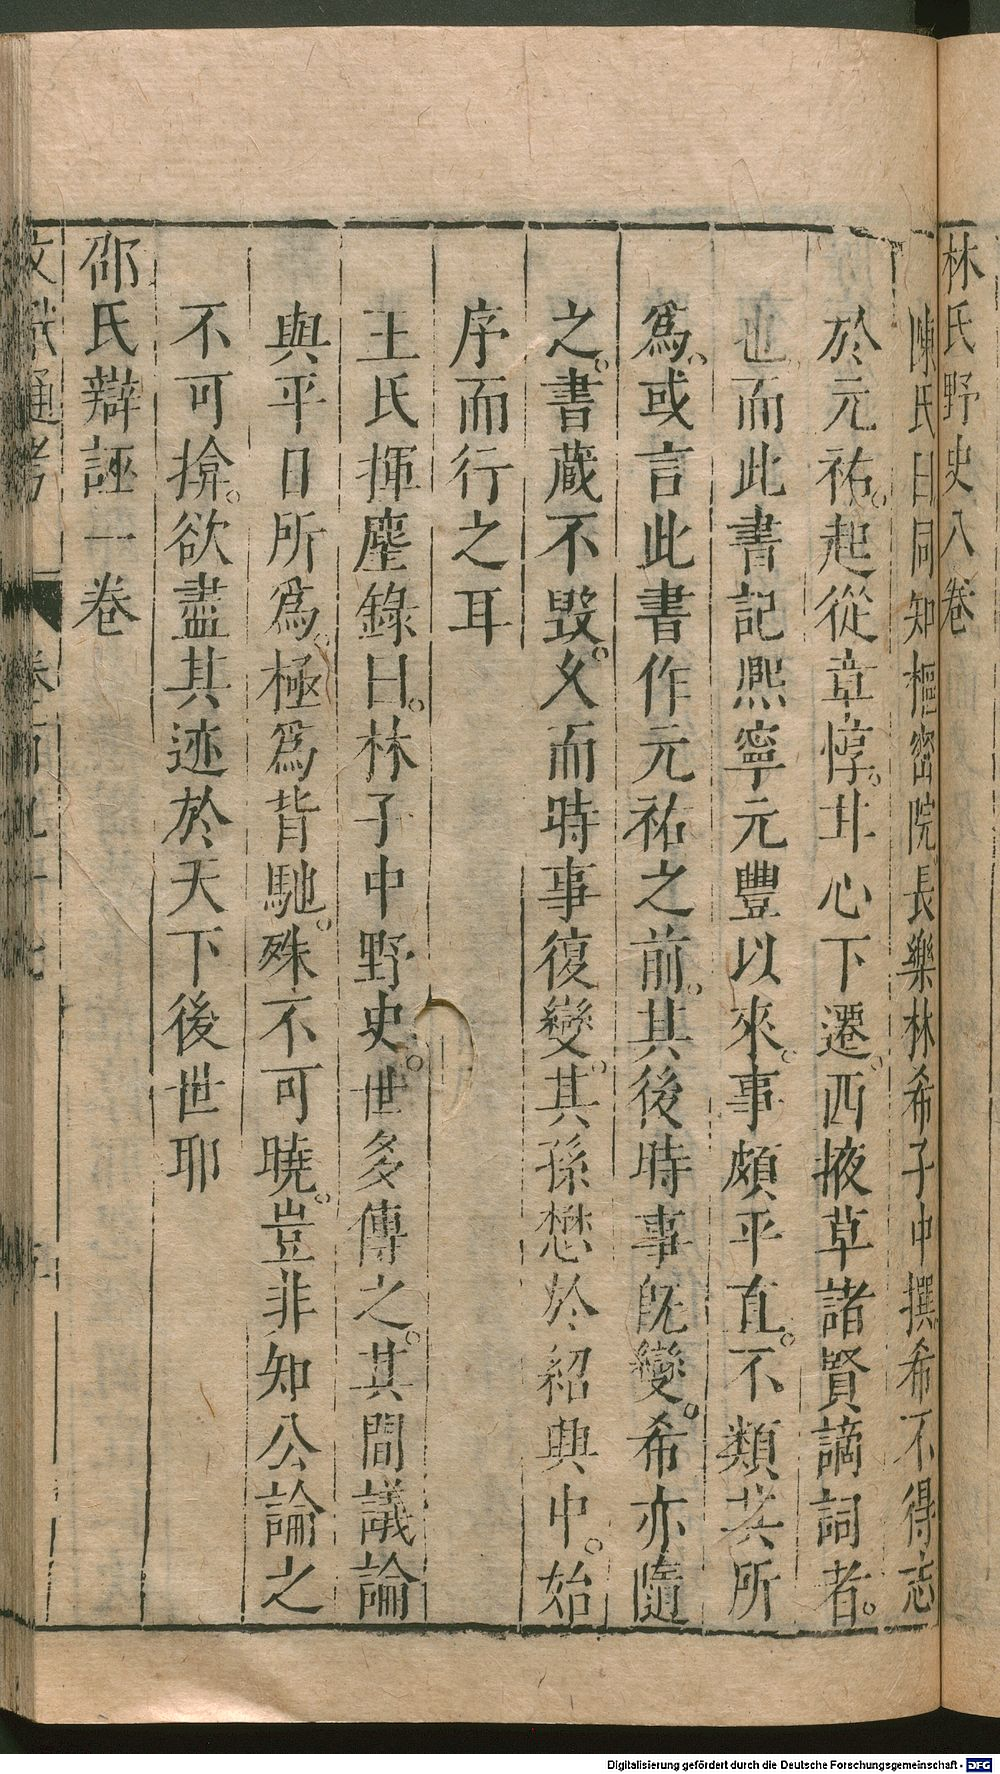 林氏野史八卷
陳氏曰同知樞密院長樂林希子中撰希不得志
於元祐。起從章惇。甘心下遷。西掖草諸賢謫詞者。
也而此書記熈寧元豐以來。事頗平直。不類其所
爲。或言此書作元祐之前。其後時事旣變。希亦隨
之。書藏不毀。久而時事復變。其孫懋於紹興中。始
序而行之耳
王氏揮麈錄曰。林子中野史。世多傳之。其間議論
與平日所爲。極爲背馳。殊不可曉。豈非知公論之
不可揜。欲盡其迹於天下後世耶
邵氏辯誣一卷
文獻通考 卷百九十七
Digitalisierung gefördert durch die Deutsche Forschungsgemeinschaft - DFG